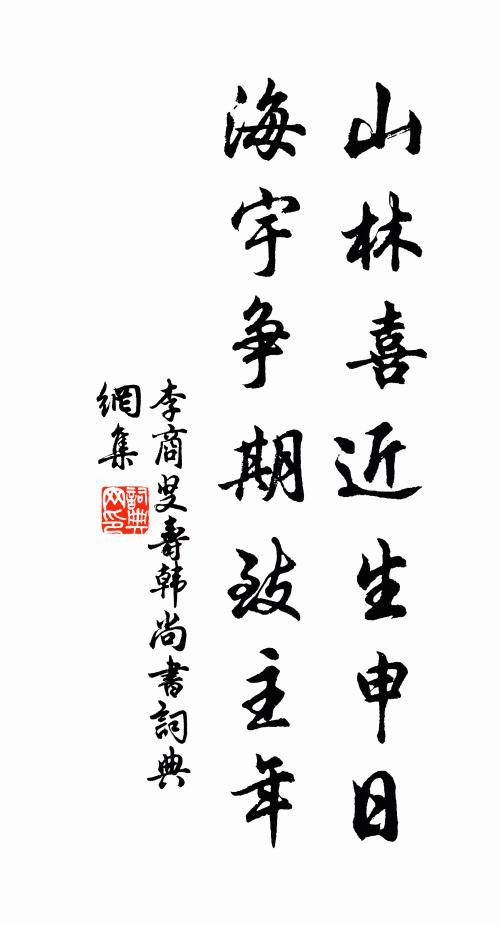 山林喜近生申日
海宇争期致主年
李商叟壽韩尚書詞典
網集
詞典网印